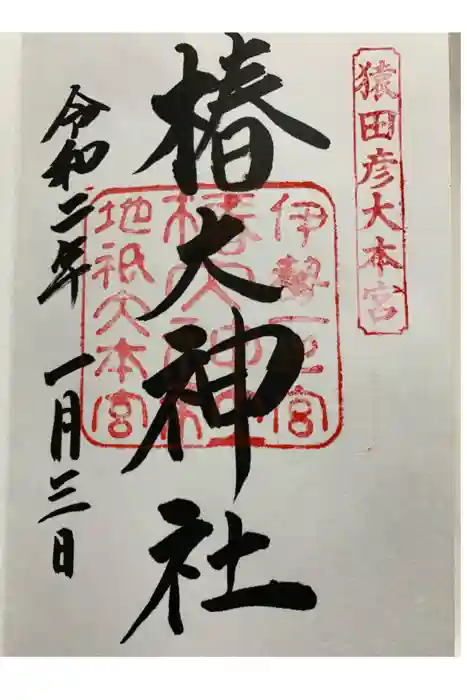 猿田彦大本宮
椿大神社
伊勢一宮
椿大神社
地祇大本宮
令和二年 一月三日